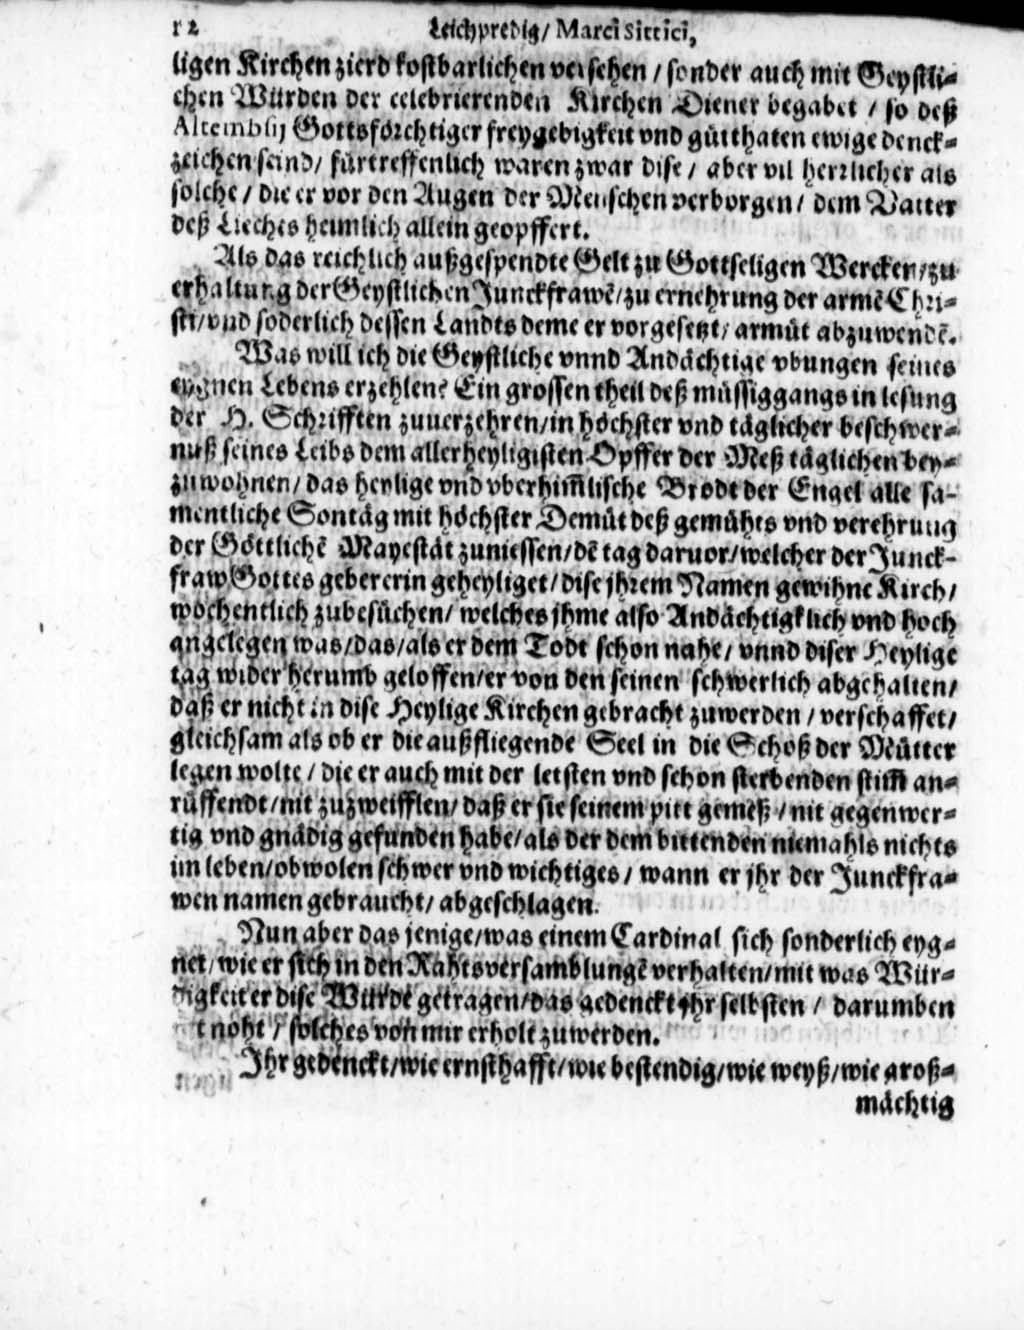 12 Leichpredig/ Marci Sittici,
ligen Kirchen zierd kostbarlichen versehen / sonder auch mit Geystli-
chen Würden der celebrierenden Kirchen Diener begabet / so deß
Altemblij Gottsförchtiger freygebigkeit vnd gütthaten ewige denck-
zeichen seind/ fürtreffenlich waren zwar dise / aber vil herrlicher als
solche / die er vor den Augen der Menschen verborgen/ dem Vatter
deß Liechts heimlich allein geopffert.
Als das reichlich außgespendte Gelt zu Gottseligen Wercken/zu
erhaltung der Geystlichen Junckfrawē/zu ernehrung der armē Chri-
sti/vnd soderlich dessen Landts deme er vorgesetzt/ armüt abzuwendē.
Was will ich die Geystliche vnnd Andächtige vbungen seines
eygnen Lebens erzehlen? Ein grossen theil deß müssiggangs in lesung
der H. Schrifften zuuerzehren/in höchster vnd täglicher beschwer-
nuß seines Leibs dem allerheyligisten Opffer der Meß täglichen bey-
zuwohnen/das heylige vnd vberhim̄lische Brodt der Engel alle sa-
mentliche Sontäg mit höchster Demüt deß gemühts vnd verehrung
der Göttlichē Mayestät zuniessen/dē tag daruor/welcher der Junck-
fraw Gottes gebererin geheyliget/dise jhrem Namen gewihne Kirch/
wochentlich zubesüchen/ welches jhme also Andächtigklich vnd hoch
angelegen was/das/als er dem Todt schon nahe/ vnnd diser Heylige
tag wider herumb geloffen/er von den seinen schwerlich abgehalten/
daß er nicht in dise Heylige Kirchen gebracht zuwerden / verschaffet/
gleichsam als ob er die außfliegende Seel in die Schoß der Mütter
legen wolte / die er auch mit der letsten vnd schon sterbenden stim̄ an-
rüffendt/nit zuzweifflen/ daß er sie seinem pitt gemeß / nit gegenwer-
tig vnd gnädig gefunden habe/als der dem bittenden niemahls nichts
im leben/obwolen schwer vnd wichtiges / wann er jhr der Junckfra-
wen namen gebraucht/ abgeschlagen.
Nun aber das jenige/was einem Cardinal sich sonderlich eyg-
net/wie er sich in den Rahtsversamblungē verhalten/mit was Wür-
digkeit er dise Würde getragen/das gedenckt jhr selbsten / darumben
noht / solches von mir erholt zuwerden.
Ihr gedenckt/wie ernsthafft/wie bestendig/wie weyß/wie groß-
mächtig